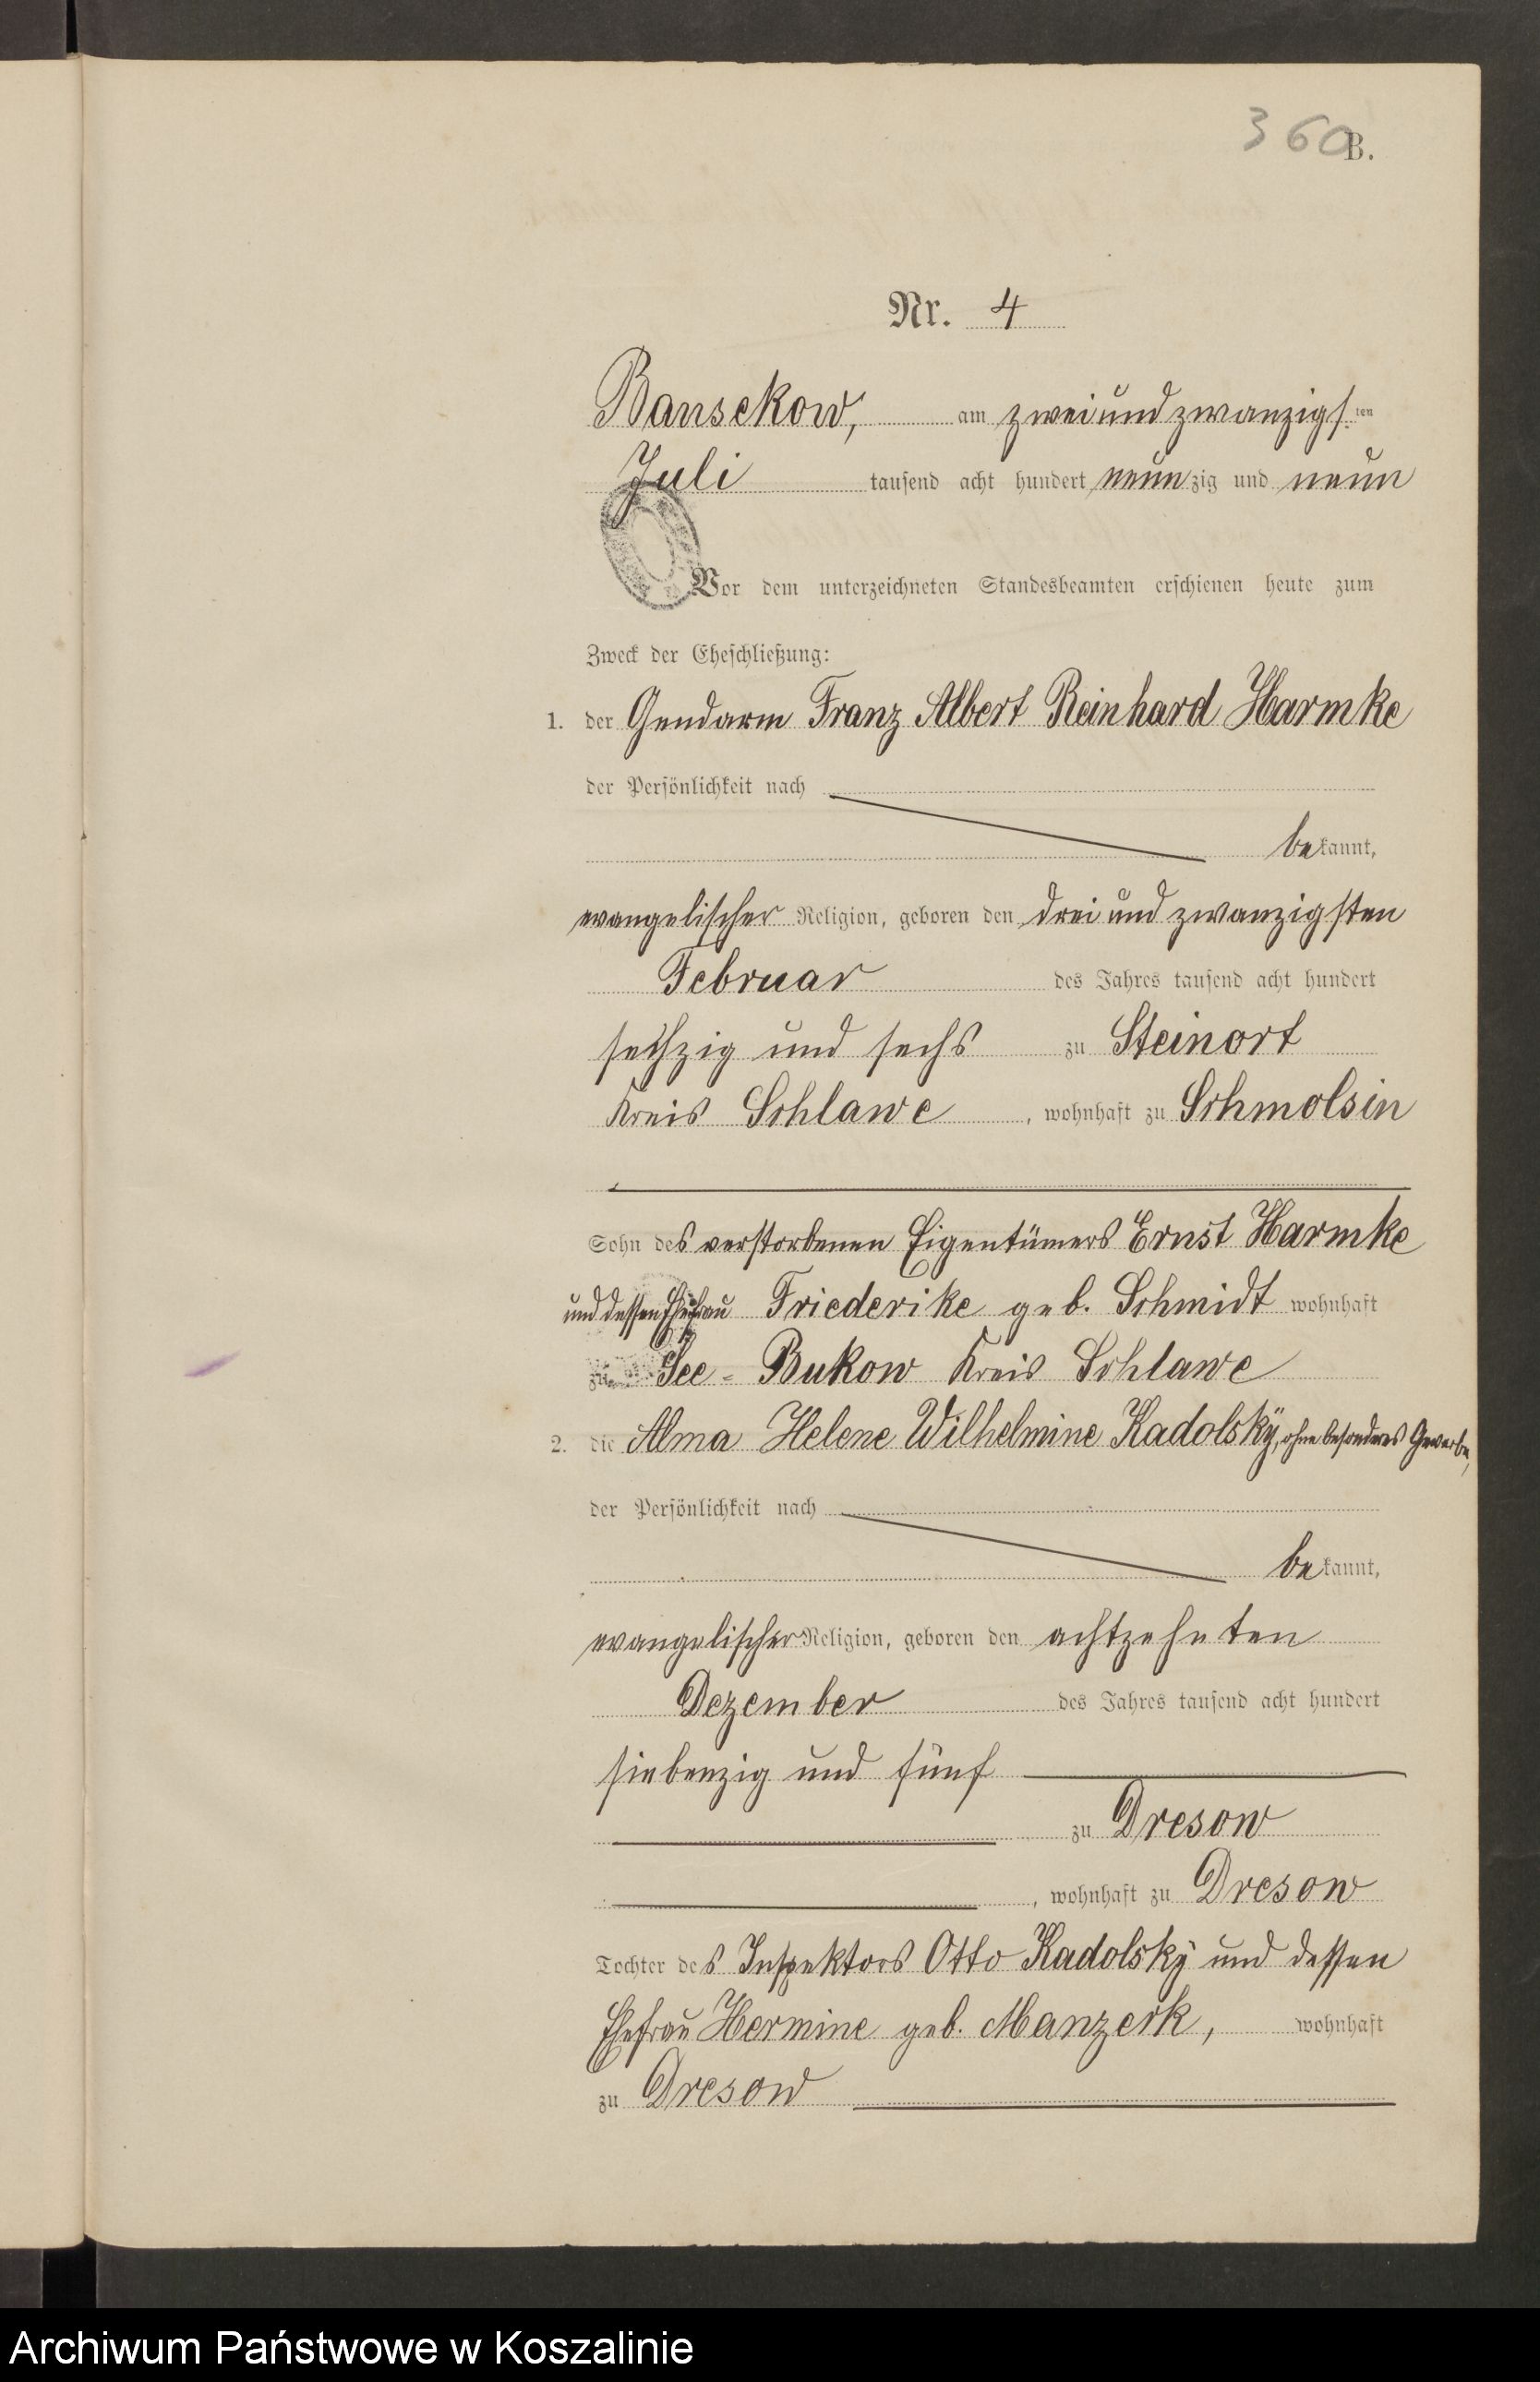 360
B.
Nr. 4
Bansekow, am zweiundzwanzigsten
Juli tausend acht hundert neunzig und neun
Vor dem unterzeichneten Standesbeamten erschienen heute zum
Zweck der Eheschließung:
1. der Gendarm Franz Albert Reinhard Harmke
der Persönlichkeit nach
bekannt,
evangelischer Religion, geboren den dreiundzwanzigsten
Februar des Jahres tausend acht hundert
sechzig und sechs zu Steinort
Kreis Schlawe, wohnhaft zu Schmolsin
Sohn des verstorbenen Eigentümers Ernst Harmke
und dessen Ehefrau Friederike geb. Schmidt wohnhaft
zu See-Bukow Kreis Schlawe
2. die Alma Helene Wilhelmine Kadolsky, ohne besonderes Gewerbe,
der Persönlichkeit nach
bekannt,
evangelischer Religion, geboren den achtzehnten
Dezember des Jahres tausend acht hundert
siebenzig und fünf
zu Dresow
, wohnhaft zu Dresow
Tochter des Inspektors Otto Kadolsky und dessen
Ehefrau Hermine geb. Manzerk, wohnhaft
zu Dresow
Archiwum Państwowe w Koszalinie